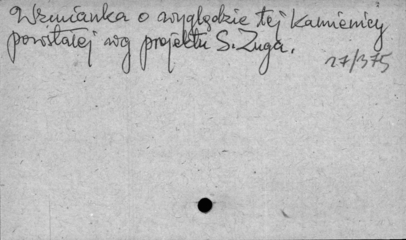 Wzmianka o wyglądzie tej kamienicy
powstałej wg projektu S. Zuga.
27/375